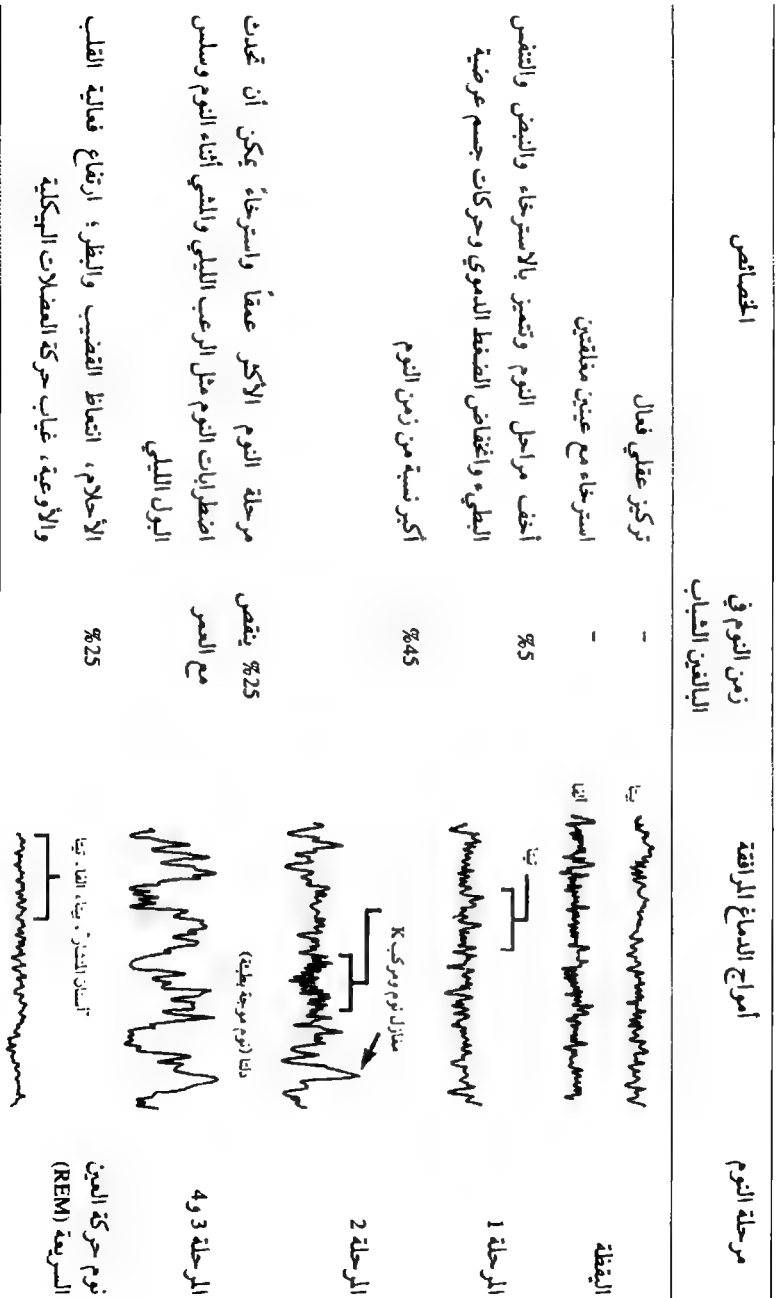 مرحلة النوم
أمواج الدماغ المرافقة
زمن النوم في
البالغين الشباب
الخصائص
اليقظة
بيتا
-
تركيز عقلي فعال
الفا
-
استرخاء مع عينين مغلقتين
المرحلة 1
تيتا
%5
أخف مراحل النوم وتتميز بالاسترخاء والنبض والتنفس
البطيء وانخفاض الضغط الدموي وحركات جسم عرضية
المرحلة 2
مغازل نوم ومركب K
%45
أكبر نسبة من زمن النوم
المرحلة 3 و4
دلتا (نوم موجة بطيئة)
%25 ينقص
مع العمر
مرحلة النوم الأكثر عمقاً واسترخاءً يمكن أن تحدث
اضطرابات النوم مثل الرعب الليلي والمشي أثناء النوم وسلس
البول الليلي
نوم حركة العين
السريعة (REM)
"أسنان المنشار"، بيتا، الفا، تيتا
%25
الأحلام، انتعاظ القضيب والبظر؛ ارتفاع فعالية القلب
والأوعية، غياب حركة العضلات الهيكلية